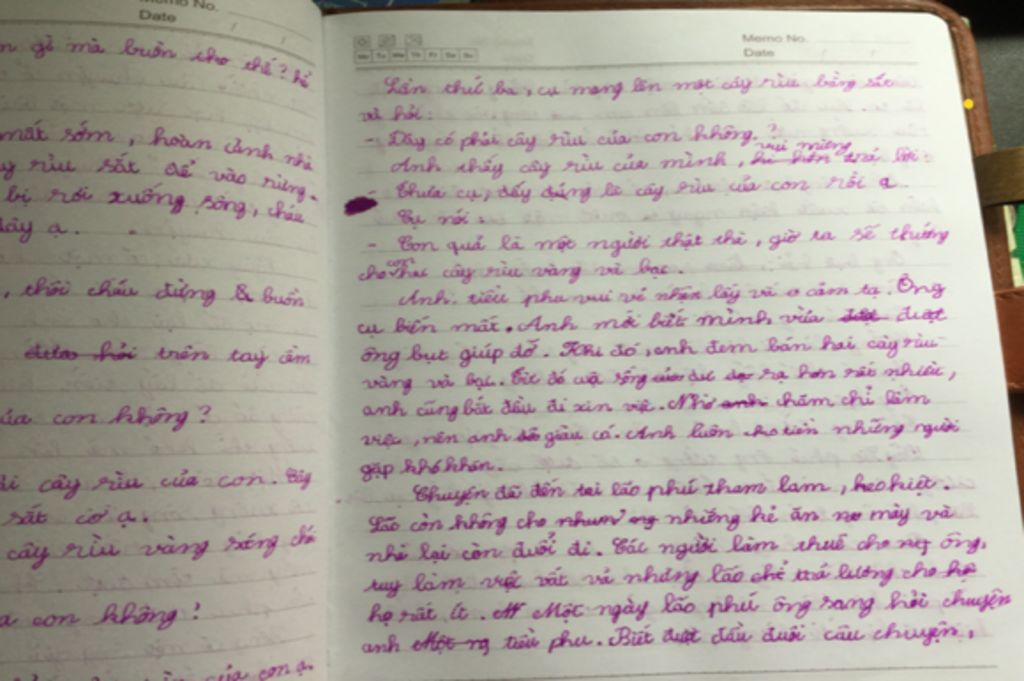 Memo No.
Date
gì mà buồn cho thế? kẻ
mất sớm, hoàn cảnh nhà
rìu sắt để vào rừng
bị rơi xuống sông, cháu
đây ạ.
, thôi cháu đừng buồn
trên tay cầm
của con không?
cây rìu của con. Cây
sắt cơ ạ.
cây rìu vàng sáng chó
con không?
của con ạ.
Mo Tu We Th Fr Sa Su
Memo No.
Date
Lần thứ ba, cụ mang lên một cây rìu bằng sắt
và hỏi:
- Đây có phải cây rìu của con không?
Anh thấy cây rìu của mình, vui mừng trả lời:
Thưa cụ, đấy đúng là cây rìu của con rồi ạ.
Cụ nói:
- Con quả là một người thật thà, giờ ta sẽ thưởng
cho con hai cây rìu vàng và bạc.
Anh tiều phu vui vẻ nhận lấy và cảm tạ. Ông
cụ biến mất. Anh mới biết mình vừa được
ông bụt giúp đỡ. Khi đó, anh đem bán hai cây rìu
vàng và bạc. Từ đó cuộc sống ra hơn rất nhiều,
anh cũng bắt đầu đi xin việc. Nhờ chăm chỉ làm
việc, nên anh giàu có. Anh luôn cho tiền những người
gặp khó khăn.
Chuyện đã đến tai lão phú tham lam, keo kiệt.
Lão còn không cho những kẻ ăn mày và
nhỏ lại còn đuổi đi. Các người làm thuê cho ông,
tuy làm việc vất vả nhưng lão chỉ trả lương cho
họ rất ít. Một ngày lão phú ông sang hỏi chuyện
anh tiều phu. Biết được đầu đuôi câu chuyện,